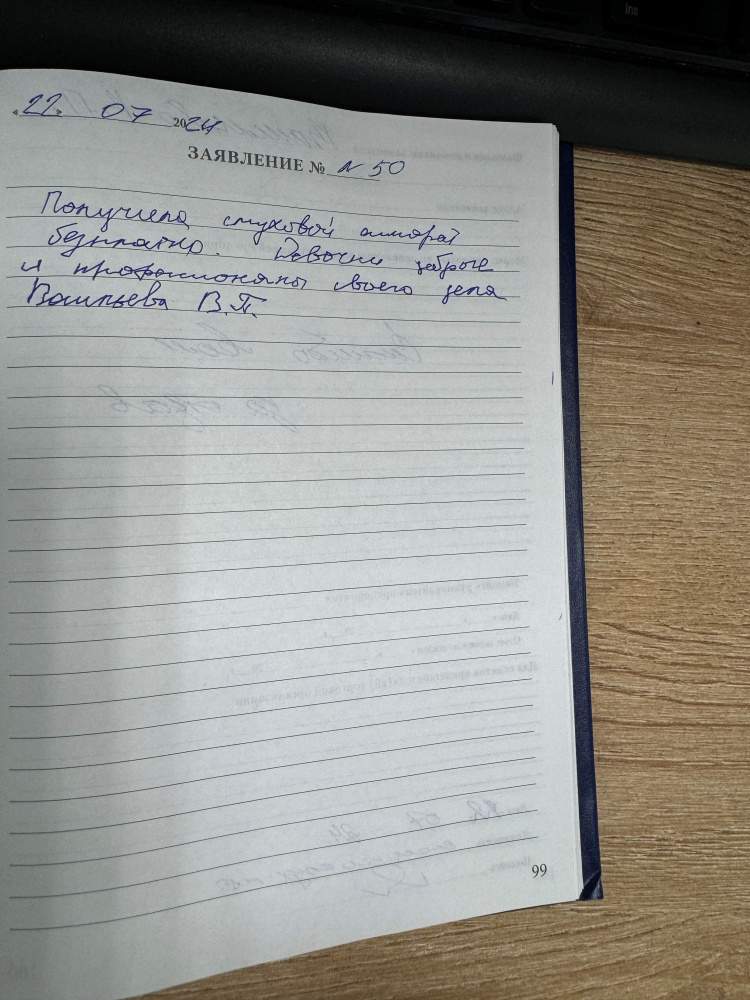 «22» 07 2024
ЗАЯВЛЕНИЕ № N 50
Получила слуховой аппарат
безплатно. Девочки добрые
и профессионалы своего дела
Васильева В.П.
99